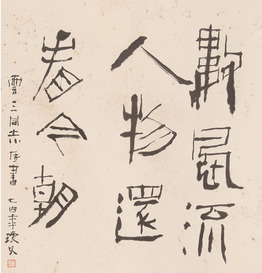 數風流
人物還
看今朝
雪三同志屬書